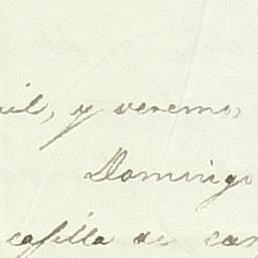 y veremo
Domingo
capilla de